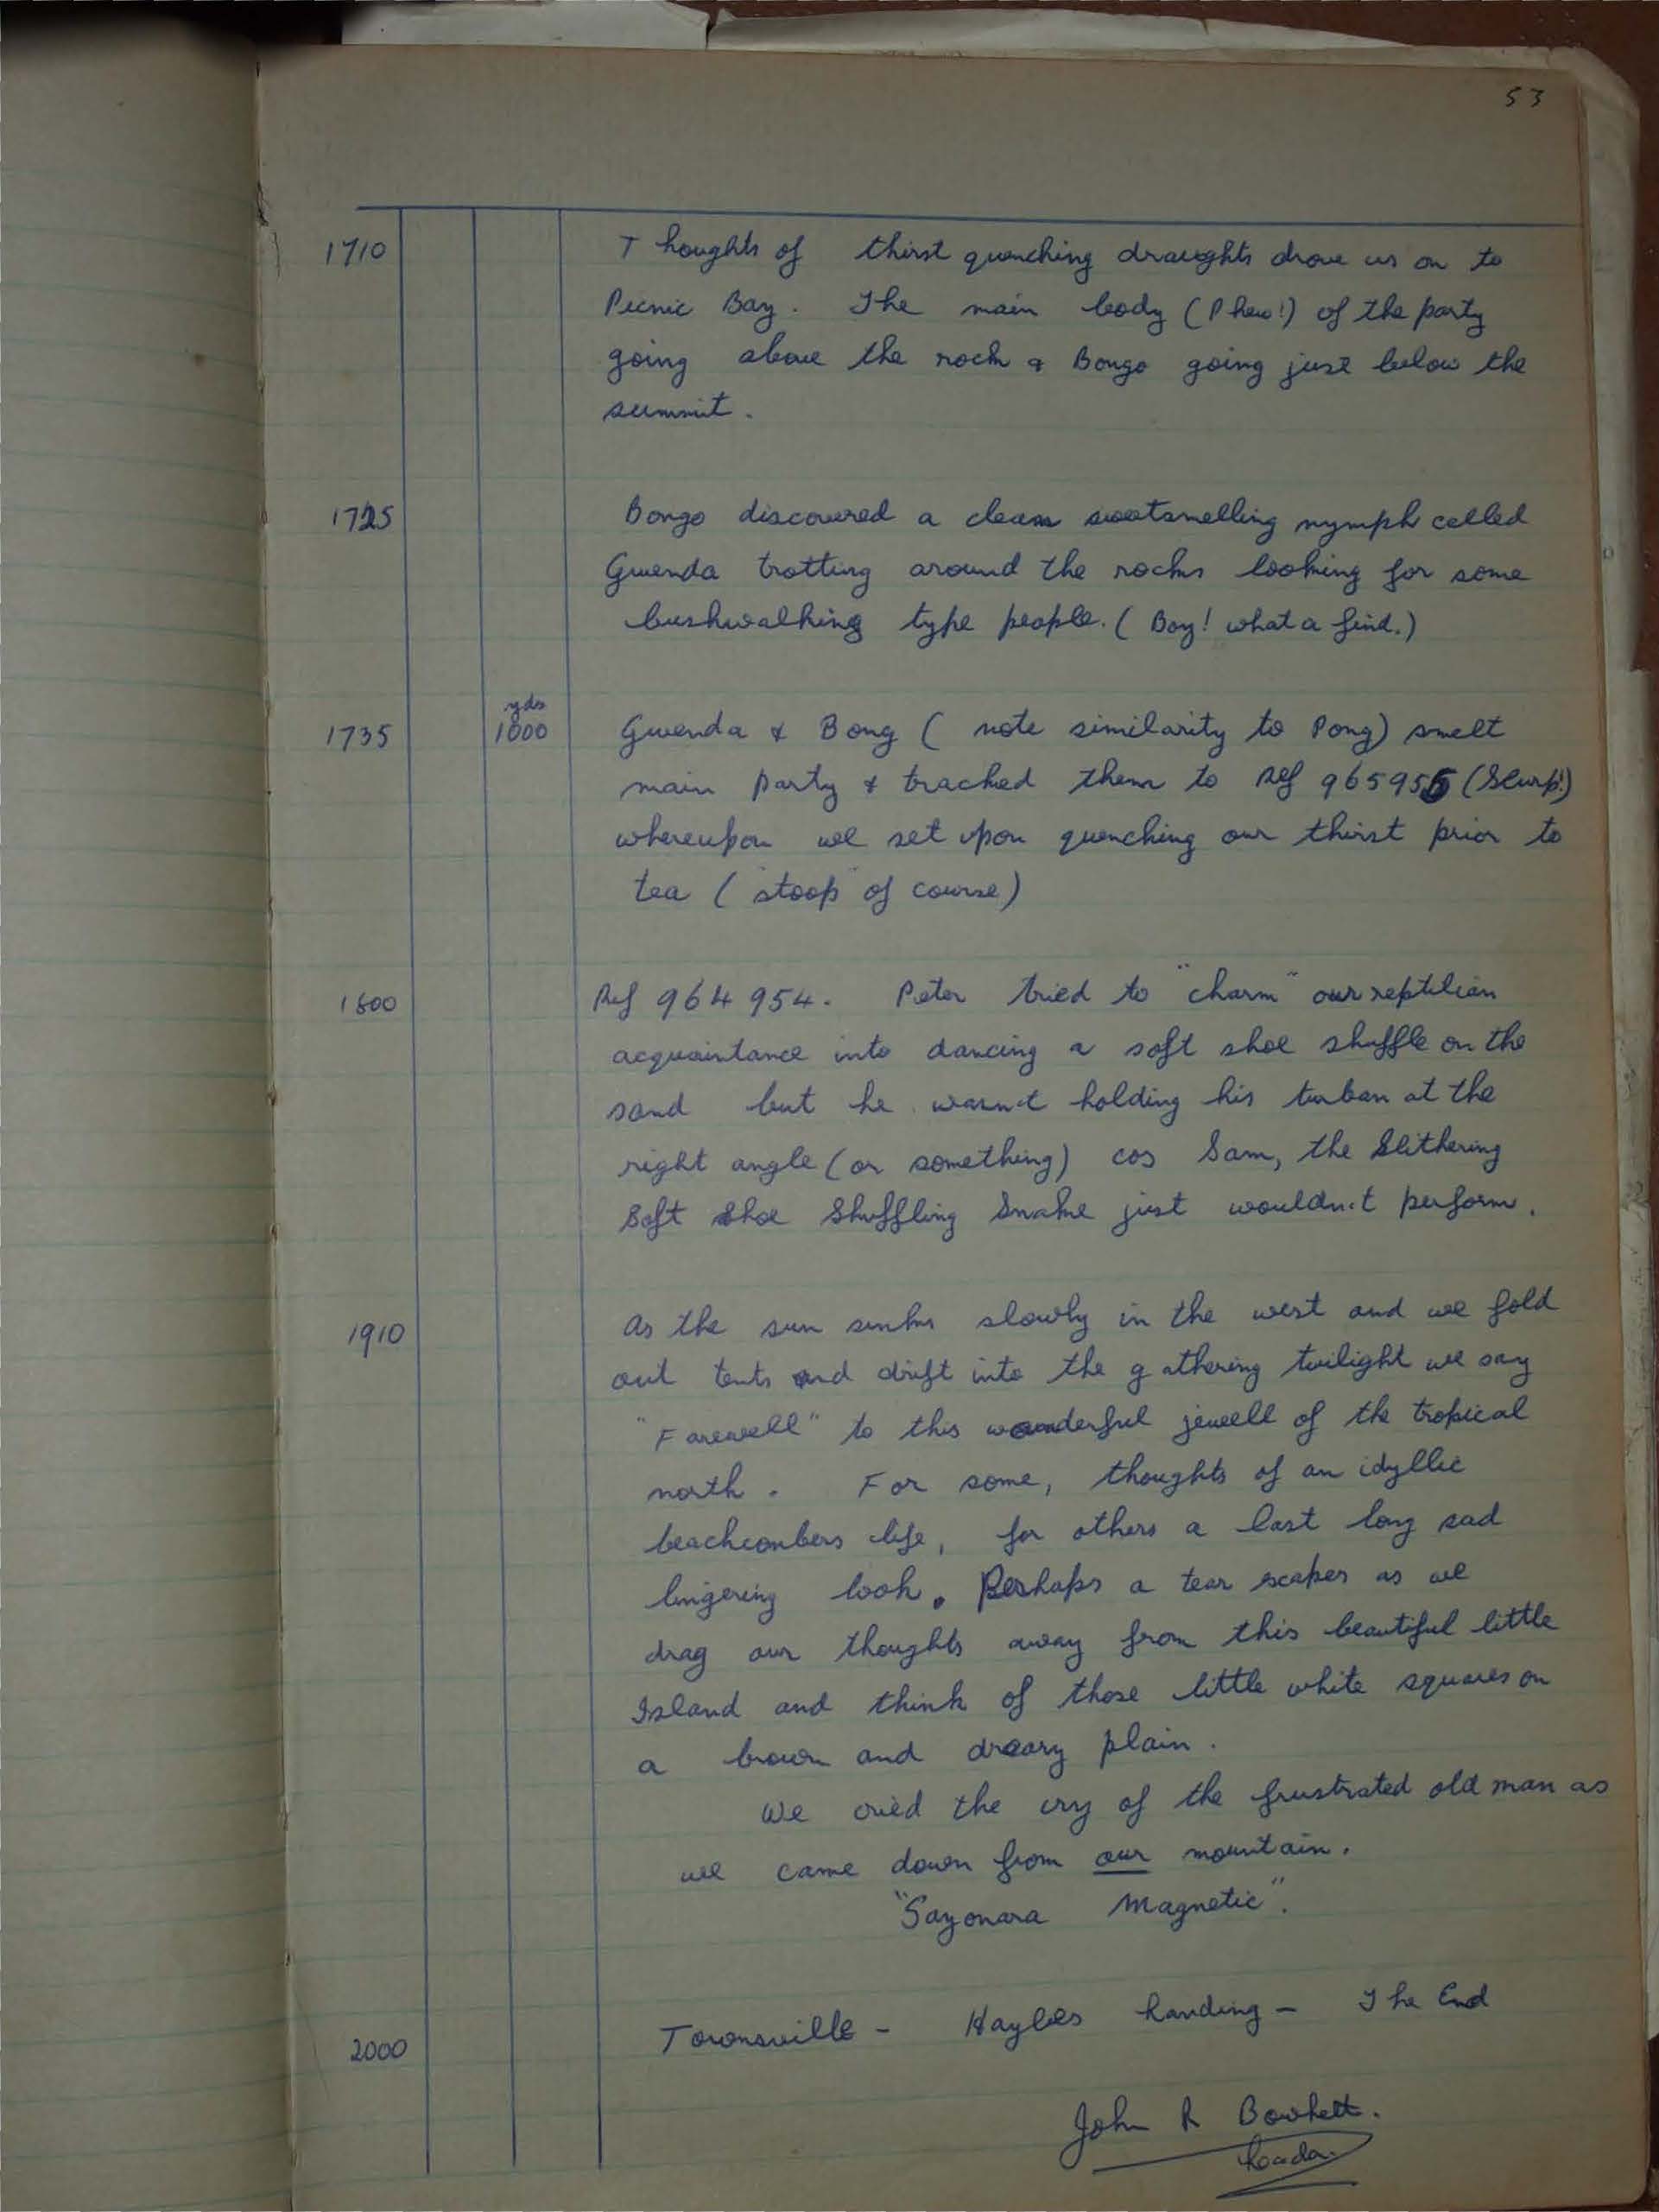 53
1710 Thoughts of thirst quenching draughts drove us on to
Picnic Bay. The main body (Phew!) of the party
going above the rock & Bongo going just below the
summit.
1725 Bongo discovered a clean sweetsmelling nymph called
Gwenda trotting around the rocks looking for some
bushwalking type people. (Boy! what a find.)
yds
1735 1000 Gwenda & Bong (note similarity to Pong) smelt
main party & tracked them to Ref 965955 (Slurp!)
whereupon we set upon quenching our thirst prior to
tea ("stoop" of course)
1800 Ref 964954. Peter tried to "charm" our reptilian
acquaintance into dancing a soft shoe shuffle on the
sand but he wasn't holding his turban at the
right angle (or something) cos Sam, the Slithering
Soft Shoe Shuffling Snake just wouldn't perform.
1910 As the sun sinks slowly in the west and we fold
out tents and drift into the gathering twilight we say
"Farewell" to this wonderful jewell of the tropical
north. For some, thoughts of an idyllic
beachcombers life, for others a last long sad
lingering look. Perhaps a tear escapes as we
drag our thoughts away from this beautiful little
Island and think of those little white squares on
a brown and dreary plain.
We cried the cry of the frustrated old man as
we came down from our mountain.
"Sayonara Magnetic".
2000 Townsville - Hayles Landing - The End
John R Bowhett.
Leader